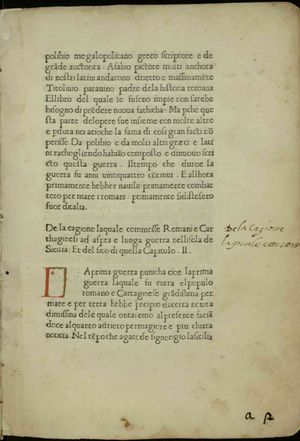 polibio megalopolitano greco scriptore e de
grāde auctorita. A fabio pictore molti anchora
di nostri latini andarono drietro e massimamēte
Titoliuio patauino padre dela historia romana
El libro del quale se fuseno impie non sarebe
bisogno di prēdere nuoua fathicha. Ma perche que
sta parte delopere sue insieme con molte altre
e pduta noi acioche la fama di cosi gran facti nō
perisse Da polibio e da molti altri greci e lati
ni rachogliendo habiāo composto e di nuouo scri
cto questa guerra. Il tempo che duroe la
guerra fu anni uintiquattro cōtinui. E allhora
primamente hebber nauilii primamente combat
tero per mare i romani. primamente
fuor ditalia.
De la cagione laquale commosse Romani e Car
thaginesi ad aspra e lunga guerra nellisola de
Sicilia. Et del sito di quella Capitulo. II.
LA prima guerra punicha cioe la prima
guerra laquale fu entra el populo
romano e Cartaginese grādissima per
mare e per terra hebbe principio di certa uicita
dimissina dele quale cntaremo al presente facēā
doce al quanto adrieto per magiere e piu chiara
noticia. Nel tēpo che agate de signorigio la sicilia
De la Cagione
laquale com
a